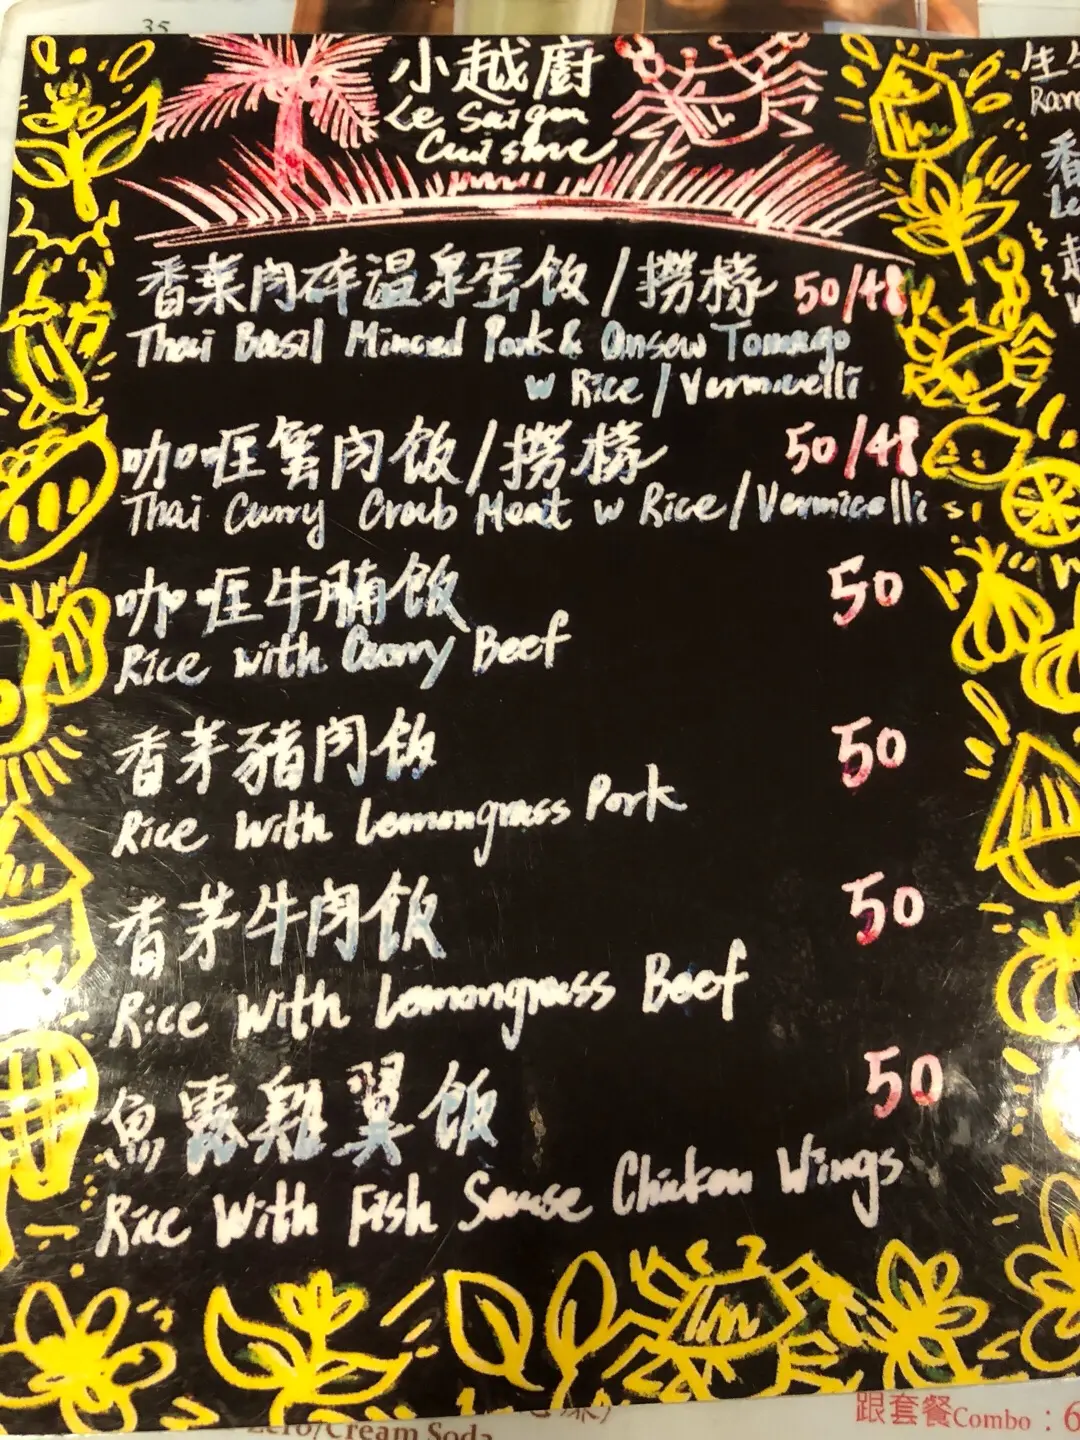 35
小越廚
Le Saigon
Cuisine
香葉肉碎溫泉蛋飯/撈檬 50/48
Thai Basil Minced Pork & Onsen Tomago
w Rice/Vermicelli
咖喱蟹肉飯/撈檬 50/48
Thai Curry Crab Meat w Rice/Vermicelli
咖喱牛腩飯 50
Rice with Curry Beef
香茅豬肉飯 50
Rice With Lemongrass Pork
香茅牛肉飯 50
Rice With Lemongrass Beef
魚露雞翼飯 50
Rice With Fish Sause Chicken Wings
生
香
Le
Zero/Cream Soda
跟套餐Combo : 6